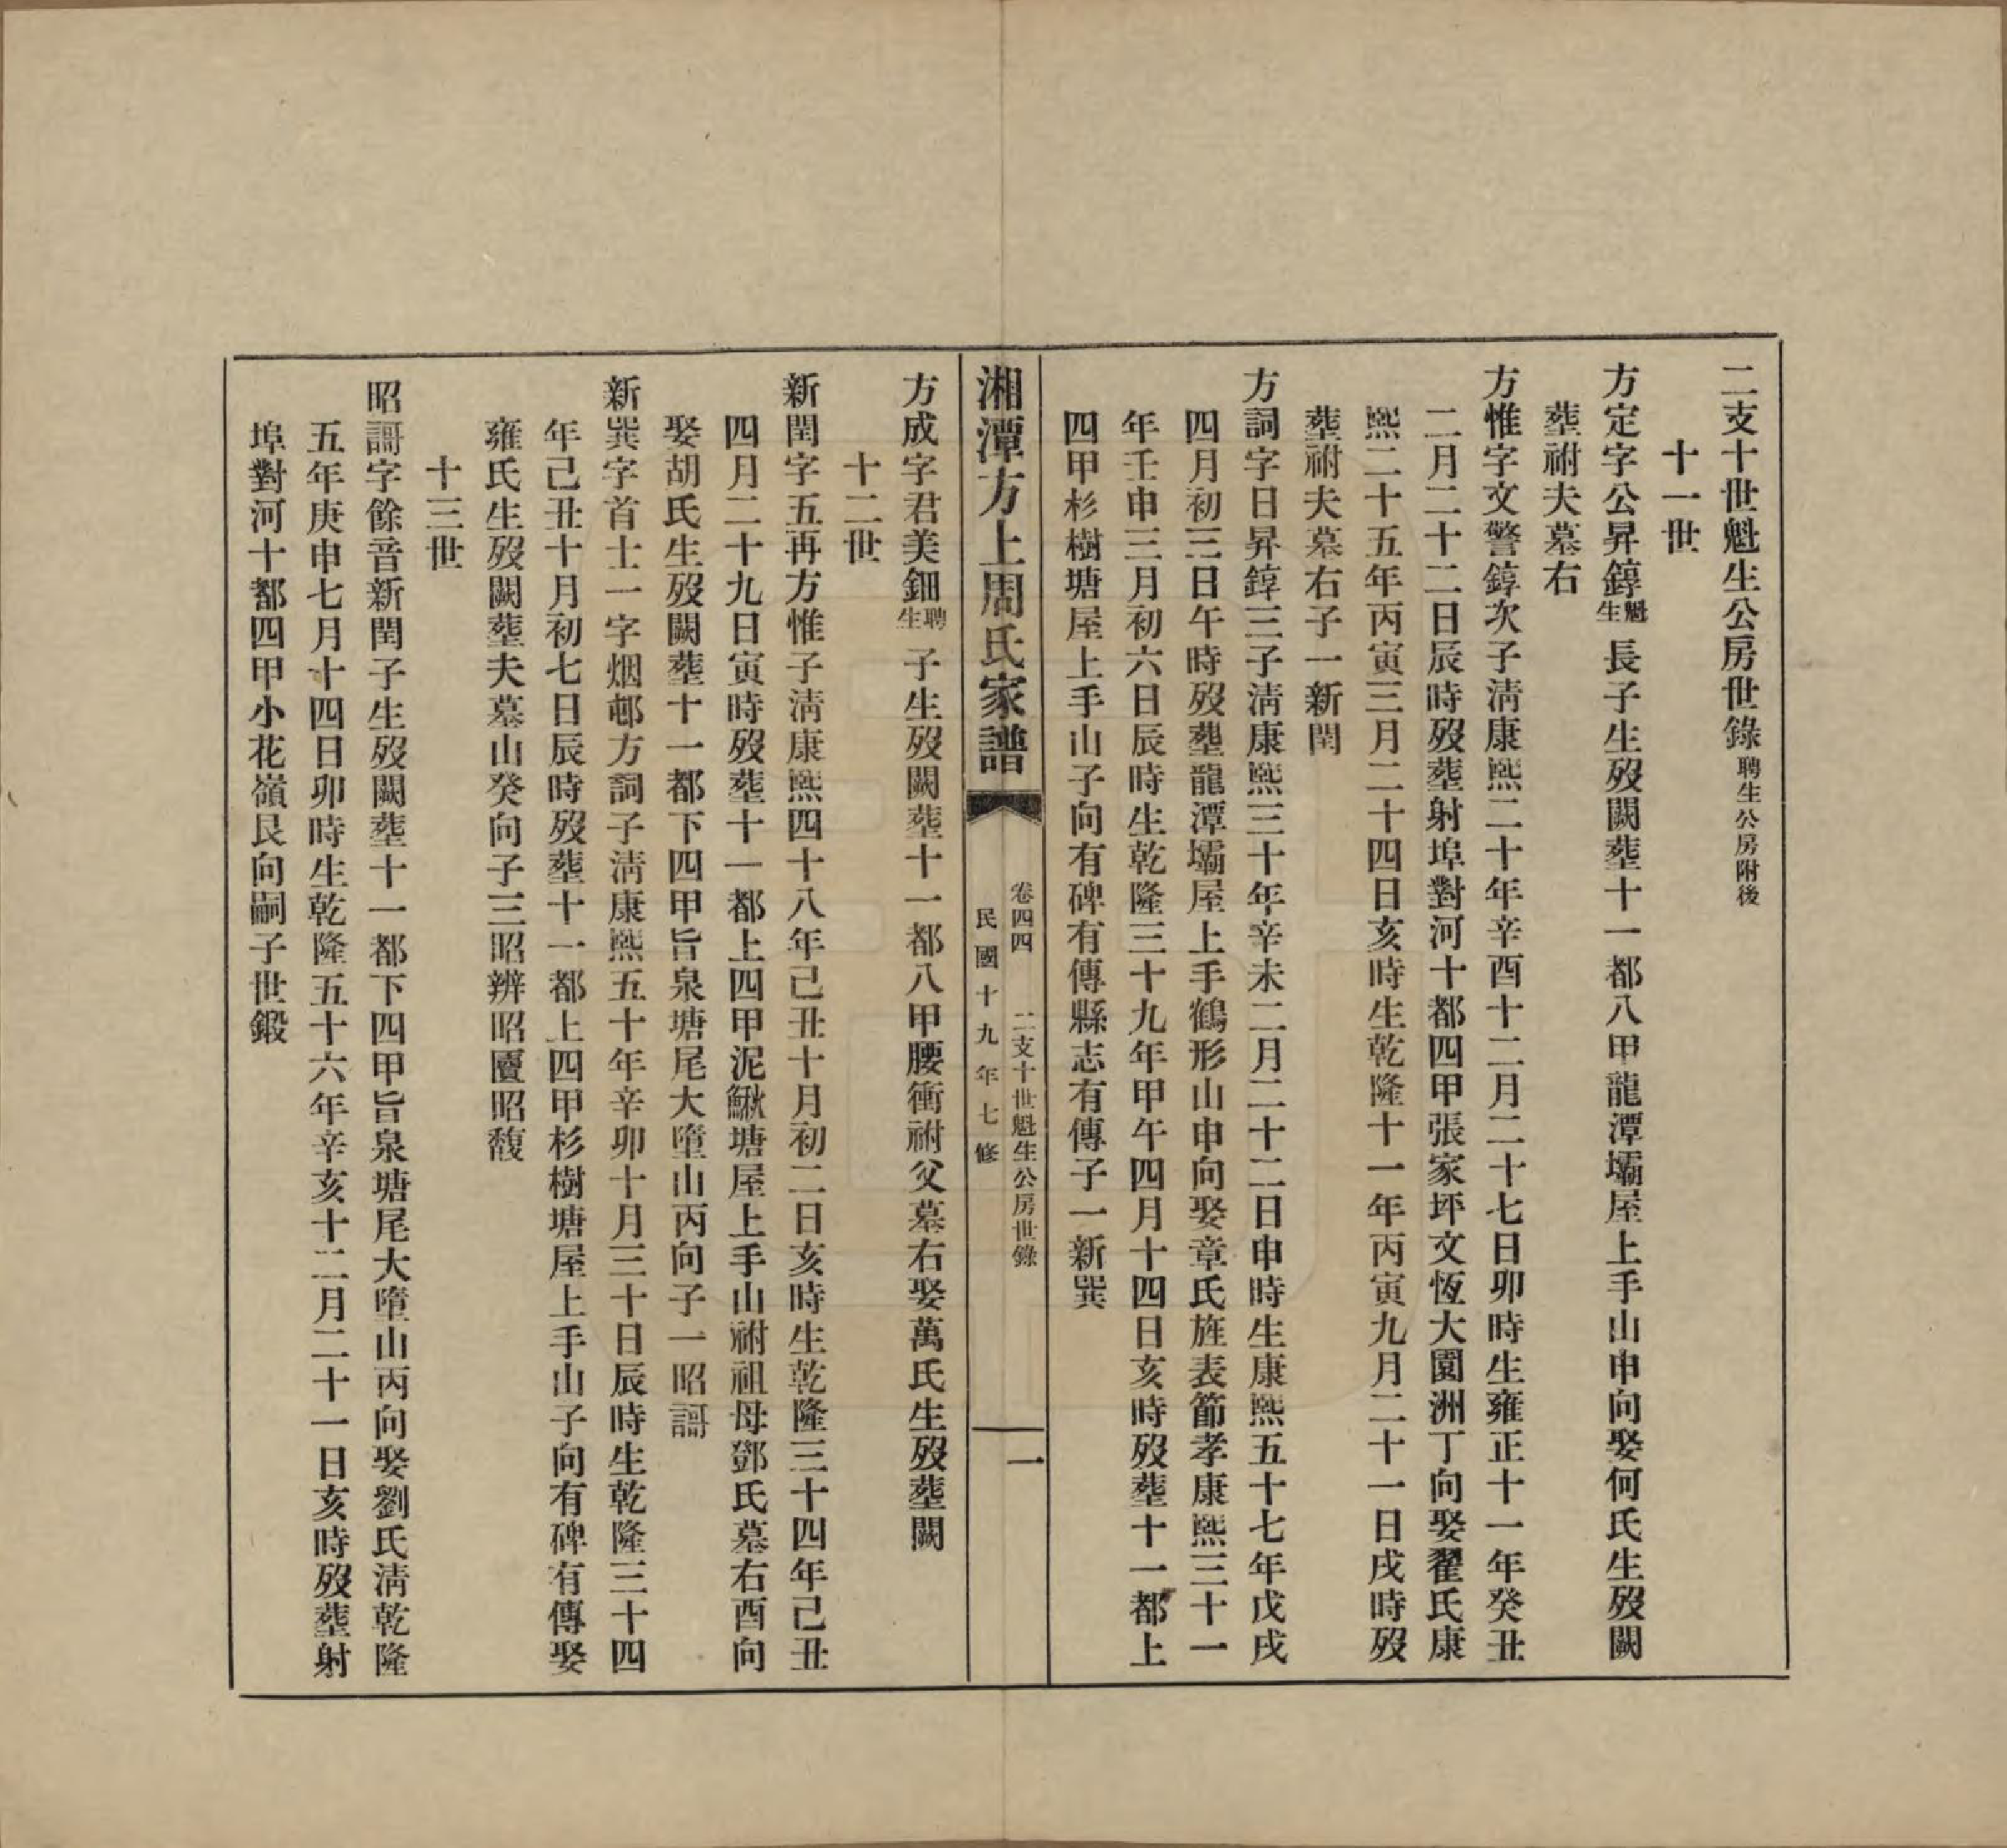 二支十世魁生公房世錄聘生公房附後
十一世
方定字公昇錞魁生長子生歿闕葬十一都八甲龍潭壩屋上手山申向娶何氏生歿闕
葬祔夫墓右
方惟字文警錞次子淸康熙二十年辛酉十二月二十七日卯時生雍正十一年癸丑
二月二十二日辰時歿葬射埠對河十都四甲張家坪文恆大園洲丁向娶翟氏康
熙二十五年丙寅三月二十四日亥時生乾隆十一年丙寅九月二十一日戌時歿
葬祔夫墓右子一新閏
方詞字日昇錞三子淸康熙三十年辛未二月二十二日申時生康熙五十七年戊戌
四月初三日午時歿葬龍潭壩屋上手鶴形山申向娶章氏旌表節孝康熙三十一
年壬申三月初六日辰時生乾隆三十九年甲午四月十四日亥時歿葬十一都上
四甲杉樹塘屋上手山子向有碑有傳縣志有傳子一新巽
湘潭方上周氏家譜
卷四四　二支十世魁生公房世錄
民國十九年七修
一
方成字君美鈿聘生子生歿闕葬十一都八甲腰衝祔父墓右娶萬氏生歿葬闕
十二世
新閏字五再方惟子淸康熙四十八年己丑十月初二日亥時生乾隆三十四年己丑
四月二十九日寅時歿葬十一都上四甲泥鰍塘屋上手山祔祖母鄧氏墓右酉向
娶胡氏生歿闕葬十一都下四甲旨泉塘尾大墮山丙向子一昭謌
新巽字首士一字烟邨方詞子淸康熙五十年辛卯十月三十日辰時生乾隆三十四
年己丑十月初七日辰時歿葬十一都上四甲杉樹塘屋上手山子向有碑有傳娶
雍氏生歿闕葬夫墓山癸向子三昭辨昭賡昭馥
十三世
昭謌字餘音新閏子生歿闕葬十一都下四甲旨泉塘尾大墮山丙向娶劉氏淸乾隆
五年庚申七月十四日卯時生乾隆五十六年辛亥十二月二十一日亥時歿葬射
埠對河十都四甲小花嶺艮向嗣子世鍛